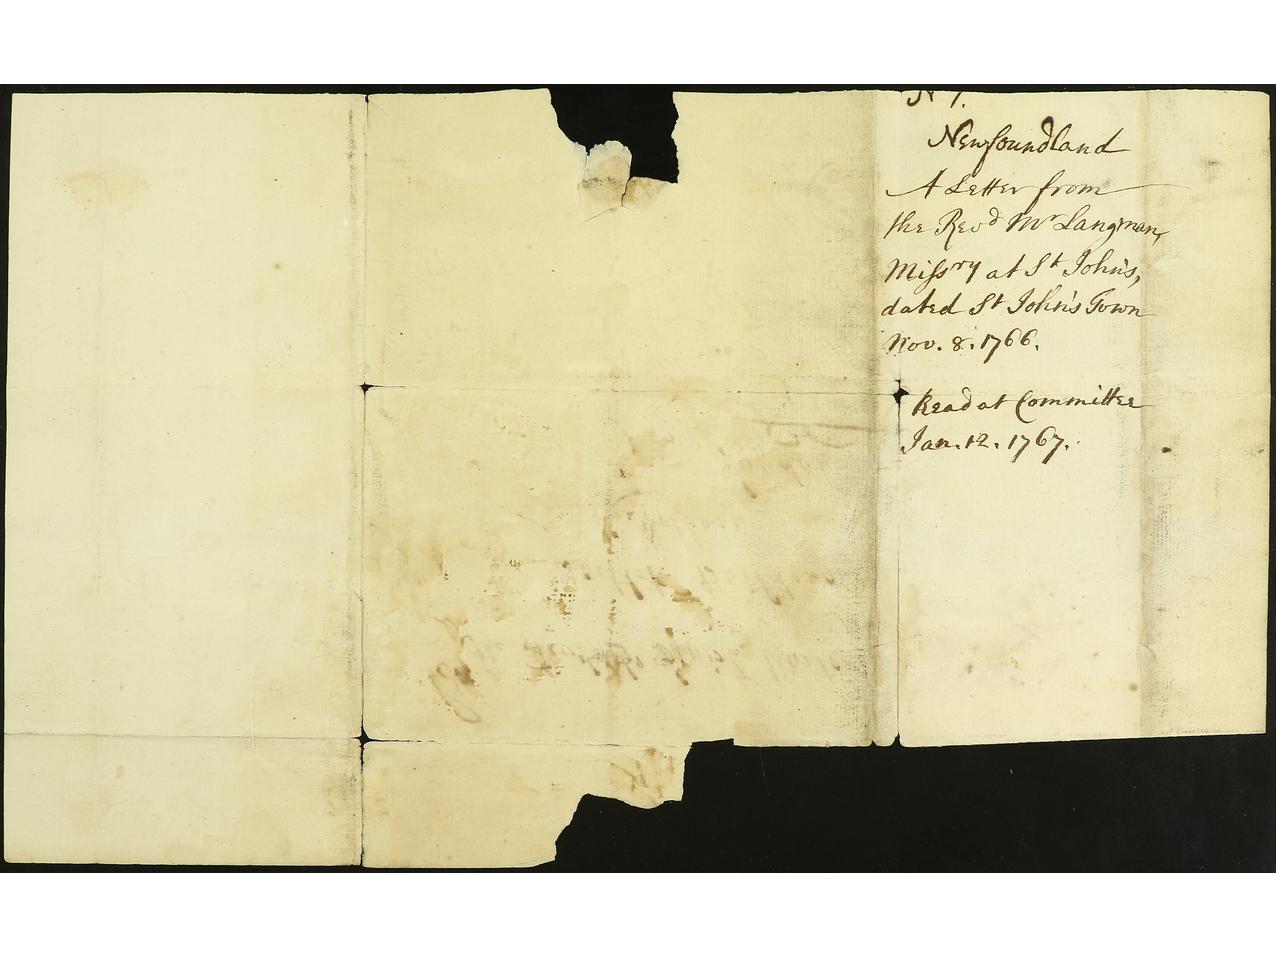 N 1.
Newfoundland
A Letter from
the Revd Mr Langman,
Missry at St John's,
dated St John's Town
Nov. 8. 1766.
Read at Committee
Jan. 12. 1767.